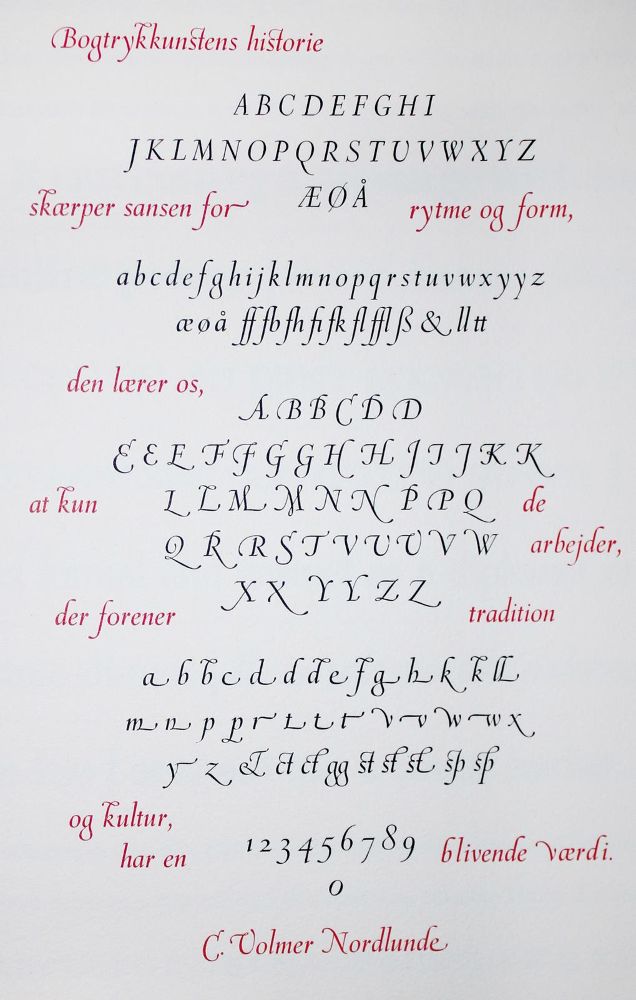 Bogtrykkunstens historie
A B C D E F G H I
J K L M N O P Q R S T U V W X Y Z
skærper sansen for Æ Ø Å rytme og form,
a b c d e f g h i j k l m n o p q r s t u v w x y y z
æ ø å ff fb fh fi fk fl ffl ß & ll tt
den lærer os,
A B B C D D
E E E F F G G H H J I J K K
at kun L L M M N N P P Q de
Q R R S T V U U V W arbejder,
X X Y Y Z Z
der forener tradition
a b b c d d d e f g h k k ll
m n p p r t t t v v w w x
y z & ct ct gg st st st sp sp
og kultur,
har en 1 2 3 4 5 6 7 8 9 blivende værdi.
0
C. Volmer Nordlunde